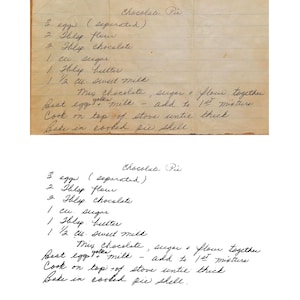 Chocolate Pie
3 eggs (separated)
2 Tblsp flour
2 Tblsp chocolate
1 cu sugar
1 Tblsp butter
1 1/2 cu sweet milk
Mix chocolate, sugar & flour together
Beat egg yolks & milk - add to 1st mixture
Cook on top of stove until thick
Bake in cooked pie shell
Chocolate Pie
3 eggs (separated)
2 Tblsp flour
2 Tblsp chocolate
1 cu sugar
1 Tblsp butter
1 1/2 cu sweet milk
Mix chocolate, sugar & flour together
Beat egg yolks & milk - add to 1st mixture
Cook on top of stove until thick
Bake in cooked pie shell.